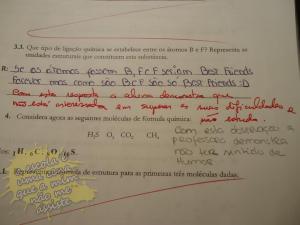 3.3. Que tipo de ligação química se estabelece entre os átomos B e F? Representa as
unidades estruturais que constituem esta substância.
R: Se os átomos fossem B, F e F seriam Best Friends
Forever mas como são B e F são só Best Friends :D
Com esta resposta a aluna demonstra que
não está interessada em superar as suas dificuldades e
não estuda.
4. Considera agora as seguintes moléculas de fórmula química:
H₂S O₂ CO₂ CH₄
Com esta observação a
professora demonstra
não ter sentido de
Humor
₁H, ₆C, ₈O, ₁₆S.
escola
uma coisa
que a mim
não me
assiste
1. Representa a fórmula de estrutura para as primeiras três moléculas dadas.